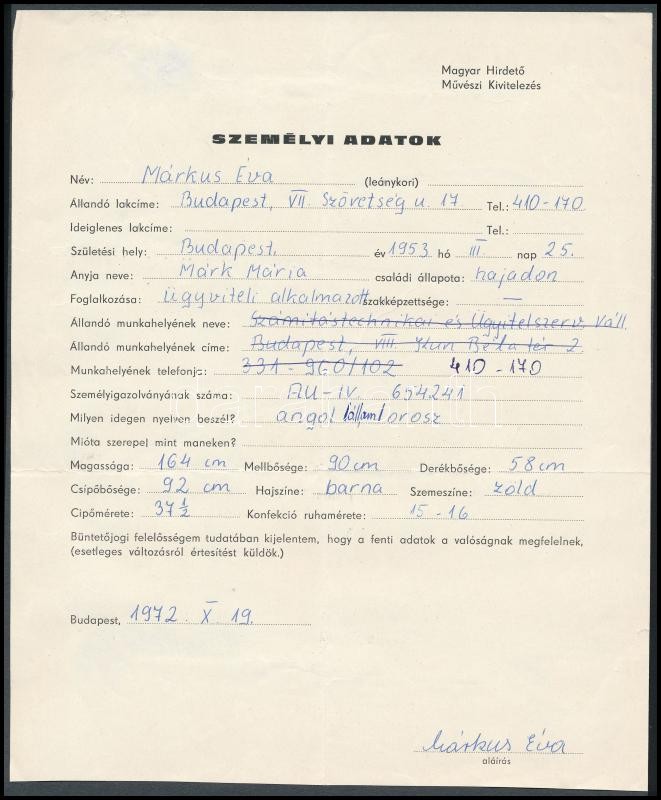 Magyar Hirdető
Művészi Kivitelezés
SZEMÉLYI ADATOK
Név: Márkus Éva (leánykori)
Állandó lakcíme: Budapest, VII. Szövetség u. 17 Tel.: 410-170
Ideiglenes lakcíme: Tel.:
Születési hely: Budapest, év 1953 hó III. nap 25.
Anyja neve: Márk Mária családi állapota: hajadon
Foglalkozása: ügyviteli alkalmazott szakképzettsége: —
Állandó munkahelyének neve: Számítástechnikai és Ügyvitelszerv. Váll.
Állandó munkahelyének címe: Budapest, VIII. Kun Béla tér 2.
Munkahelyének telefonja: 331-960/102 410-170
Személyigazolványának száma: AU-IV. 654241
Milyen idegen nyelven beszél? angol (állami) orosz
Mióta szerepel mint maneken?
Magassága: 164 cm Mellbősége: 90 cm Derékbősége: 58 cm
Csípőbősége: 92 cm Hajszíne: barna Szemeszíne: zöld
Cipőmérete: 37 1/2 Konfekció ruhamérete: 15-16
Büntetőjogi felelősségem tudatában kijelentem, hogy a fenti adatok a valóságnak megfelelnek,
(esetleges változásról értesítést küldök.)
Budapest, 1972. X. 19.
Márkus Éva
aláírás